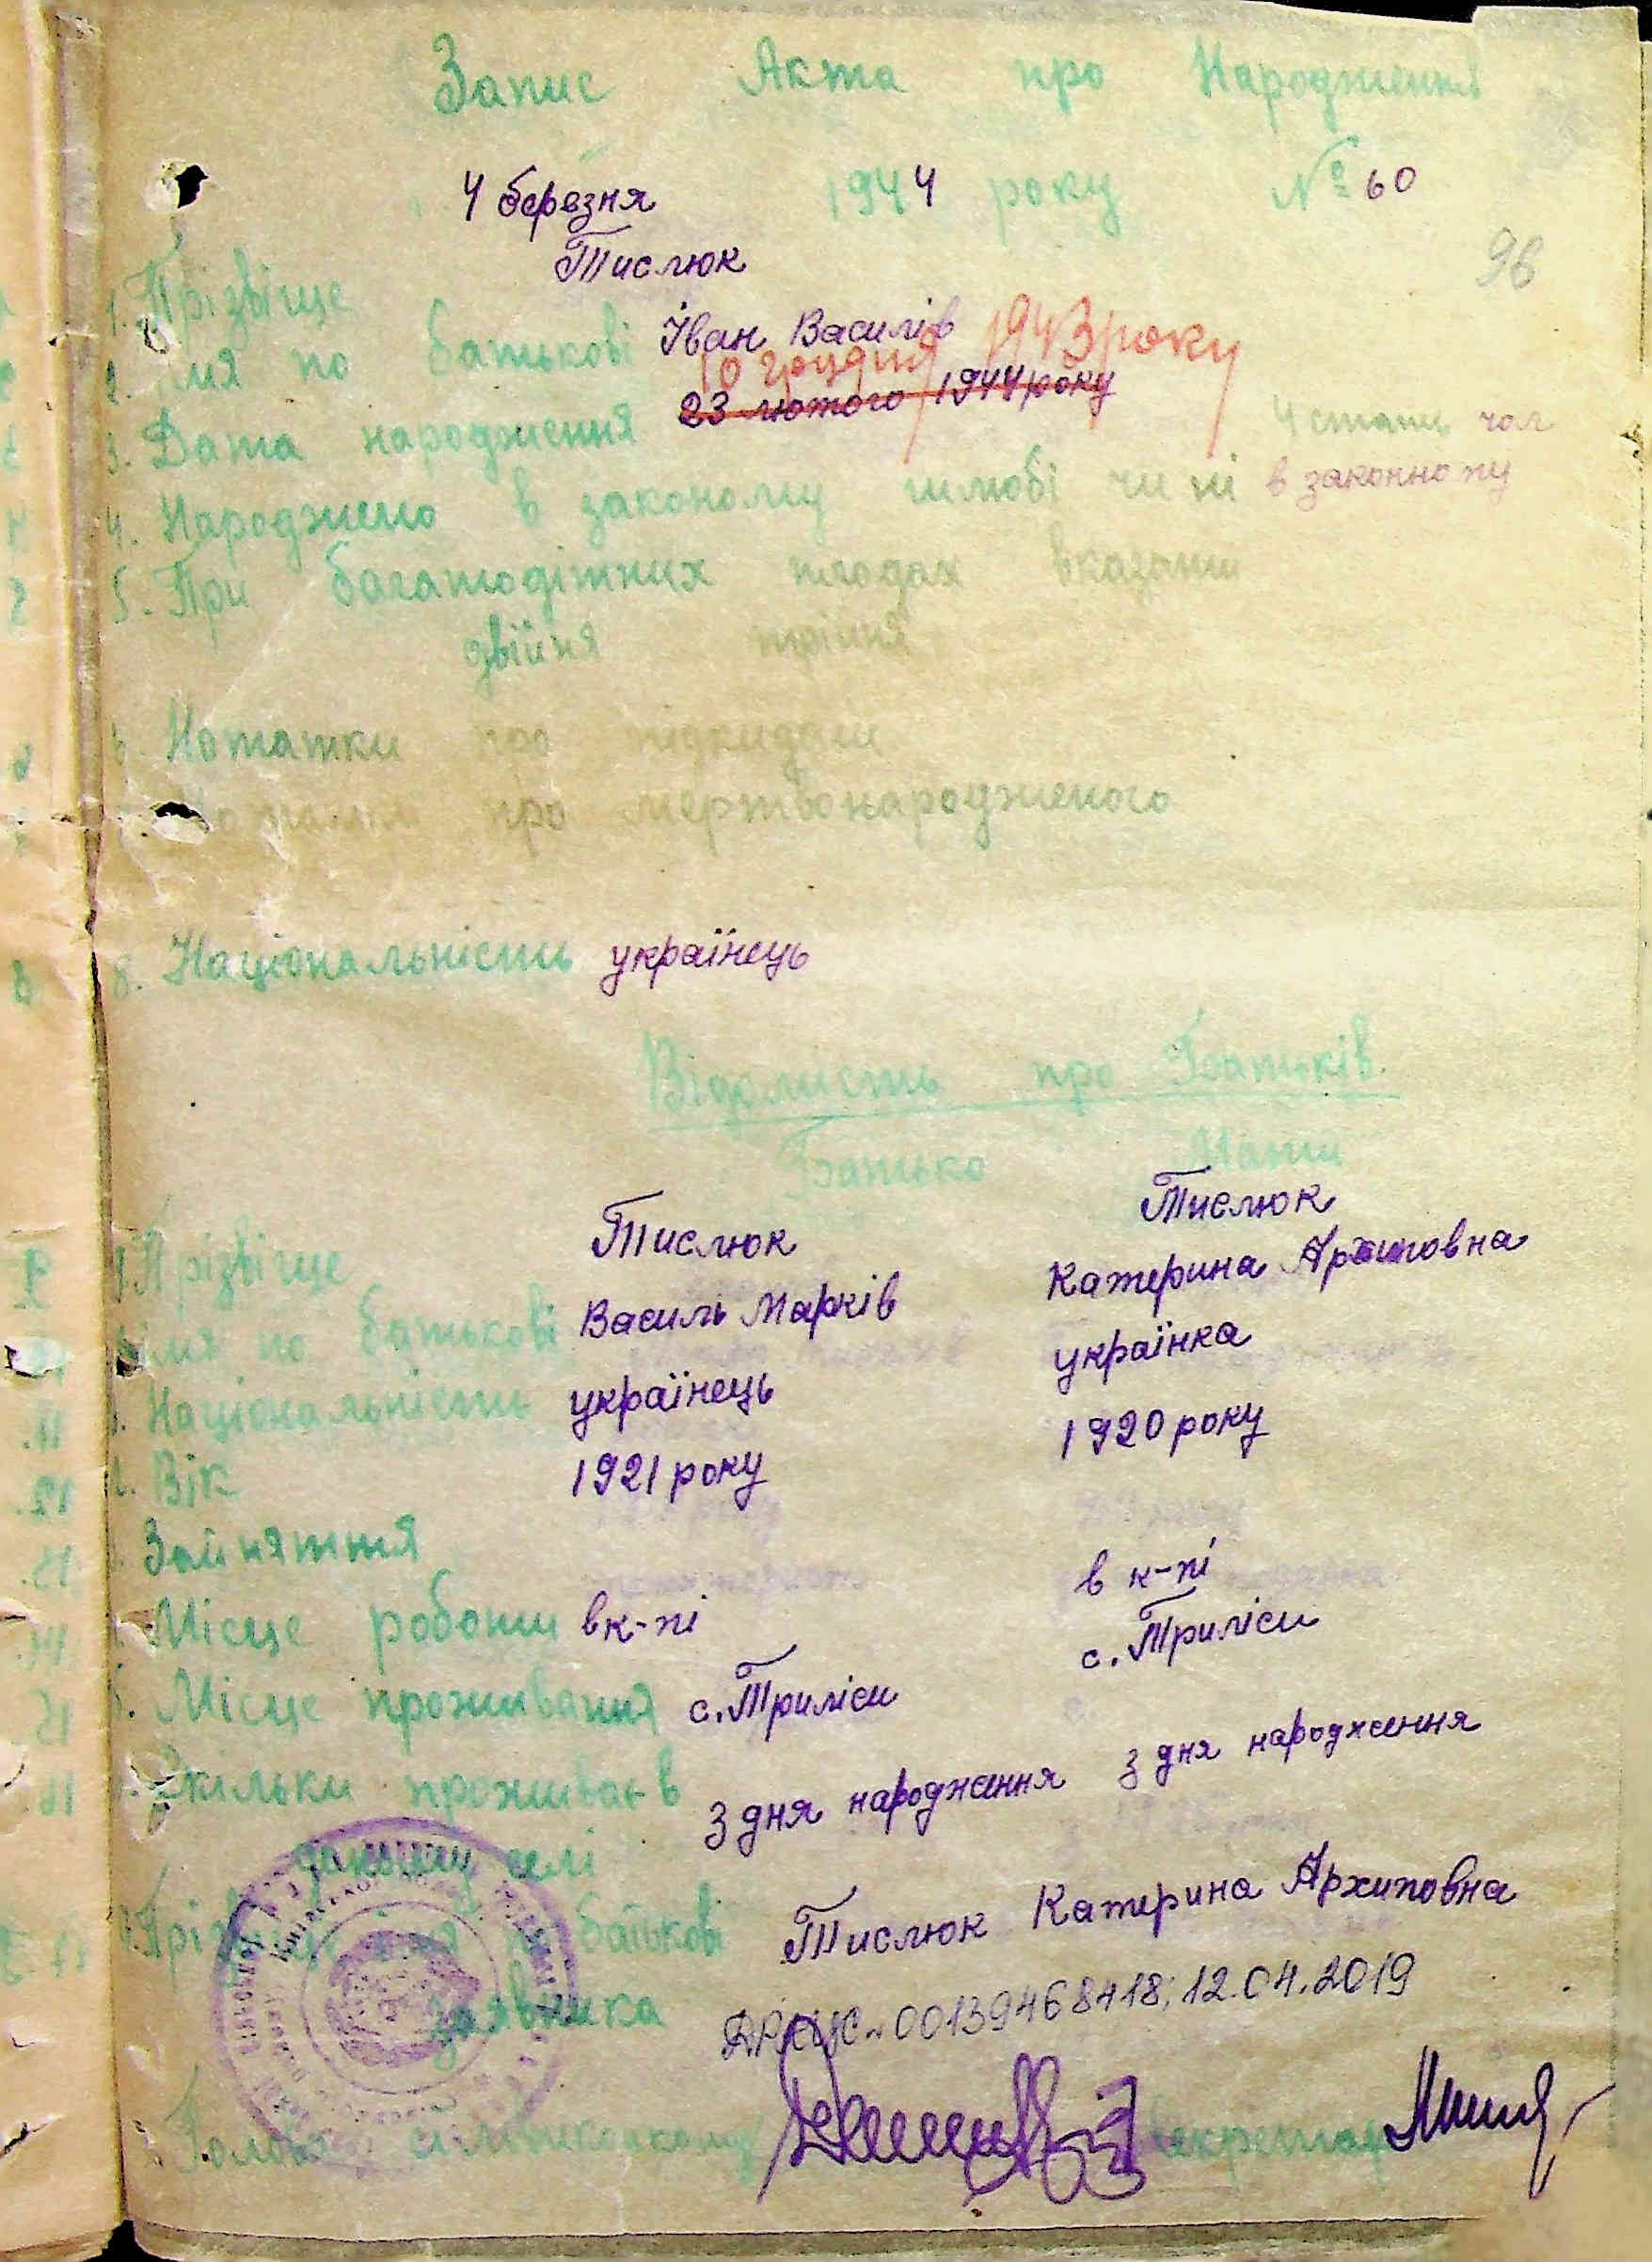 Запис Акта про Народження
4 березня 1944 року № 60
96
1. Прізвіще Тислюк
2. імя по батькові Іван Василів
10 грудня 1943 року
3. Дата народження 23 лютого 1944 року
4 стать чол
4. Народжено в законому шлюбі чи ні в законному
5. При багатодітних плодах вказати
двійня трійня
6. Нотатки про підкидання
Нотатки про мертвонародженого
8. Національність українець
Відомисть про Батьків
Батько Мати
Прізвіще Тислюк Тислюк
імя по батькові Василь Марків Катерина Архиповна
Національність українець українка
Вік 1921 року 1920 року
Зайняття
Місце роботи в к-пі в к-пі
Місце проживання с. Триліси с. Триліси
Скільки проживає в з дня народження з дня народження
даному селі
Прізвіще імя по батькові Тислюк Катерина Архиповна
заявника
ДРАЦС 00139468418; 12.04.2019
Голова Секретар